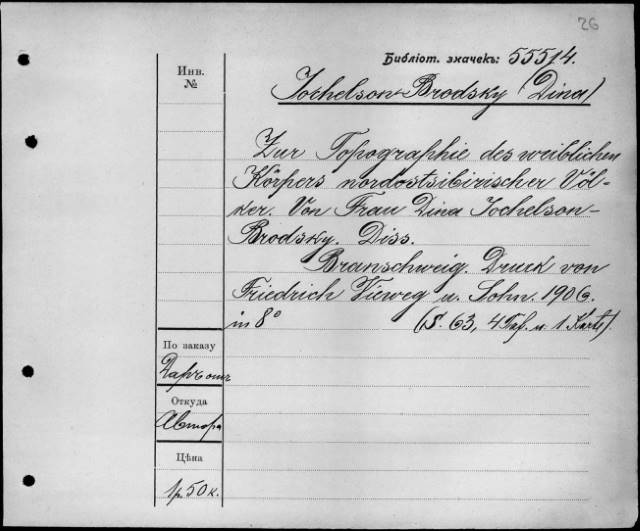 26
Библіот. значекъ: 55514.
Инв.
№
Jochelson-Brodsky (Dina)
Zur Topographie des weiblichen
Körpers nordostsibirischer Völ-
ker. Von Frau Dina Jochelson-
Brodsky. Diss.
Branschweig. Druck von
Friedrich Vieweg u. Sohn. 1906.
in 8°
(S. 63, 4 Taf. u. 1 Karte).
По заказу
Даръ отъ
Откуда
Автора
Цѣна
1 р. 50 к.